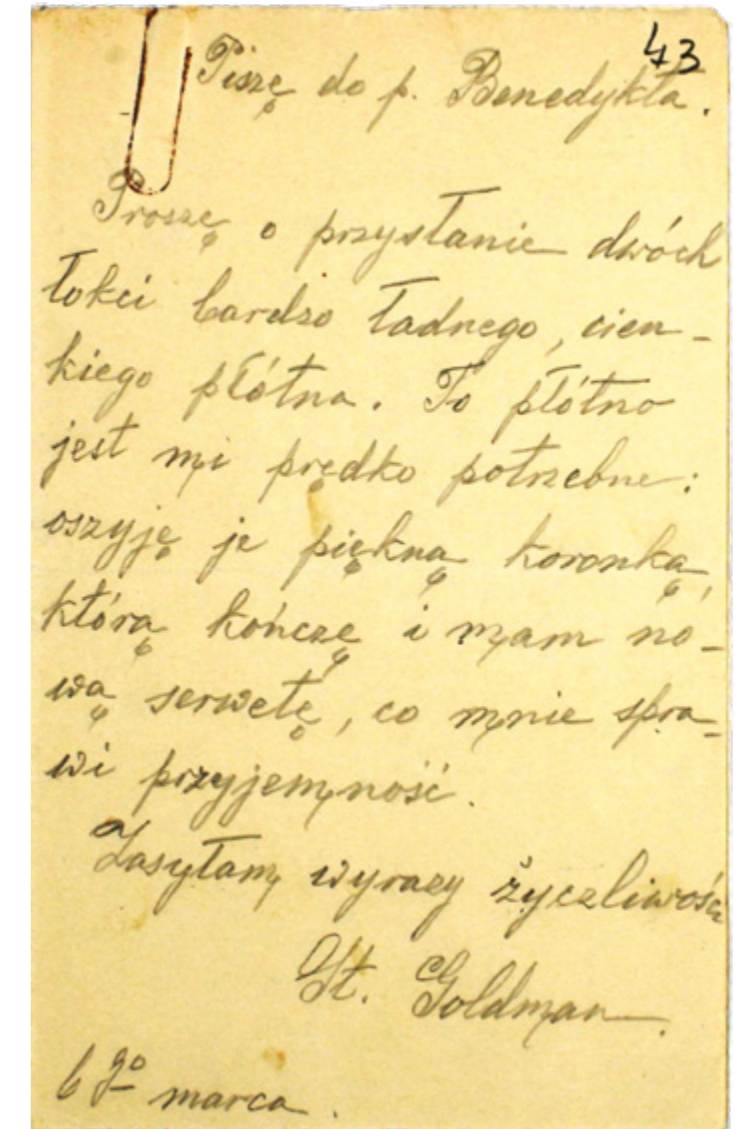 43
Piszę do p. Benedykta.
Proszę o przysłanie dwóch
łokci bardzo ładnego, cien-
kiego płótna. To płótno
jest mi prędko potrzebne:
oszyję je piękną koronką,
którą kończę i mam no-
wą serwetę, co mnie spra-
wi przyjemność.
Zasyłam wyrazy życzliwości
St. Goldman.
6 go marca.